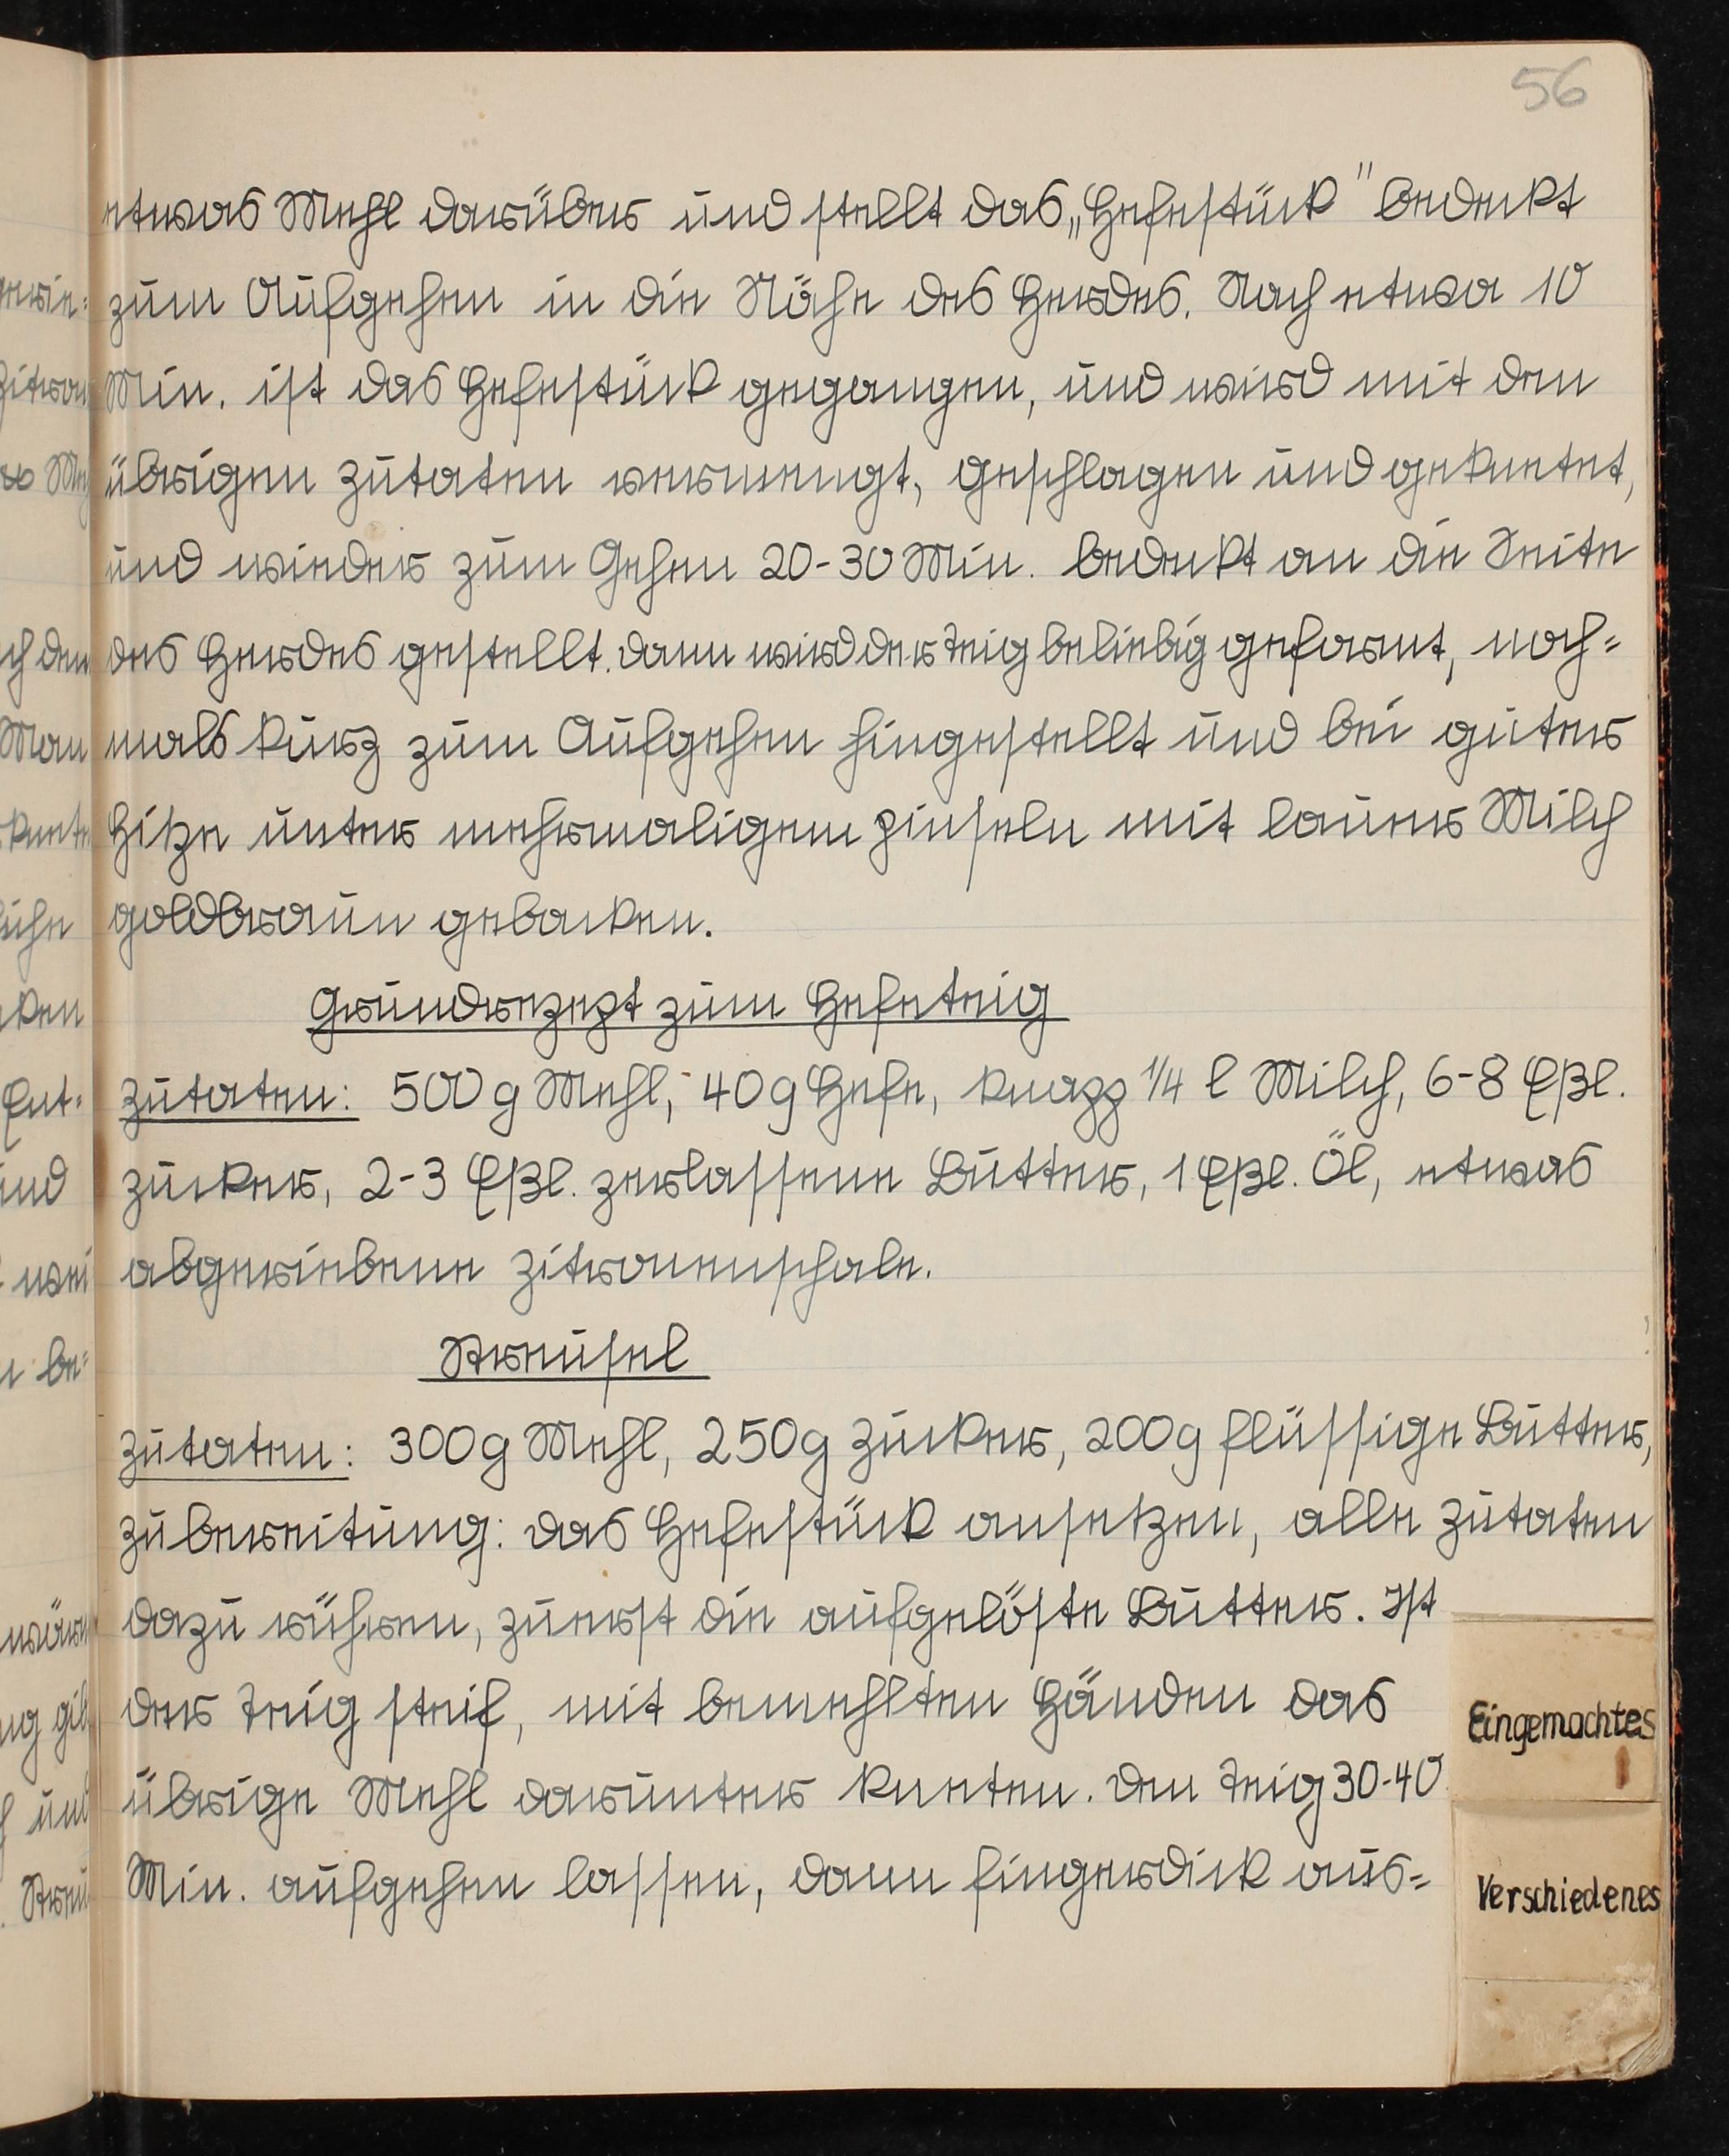 56
etwas Mehl darüber und stellt das „Hefestück" bedeckt
zum Aufgehen in die Nähe des Herdes. Nach etwa 10
Min. ist das Hefestück gegangen, und wird mit den
übrigen Zutaten vermengt, geschlagen und geknetet,
und wieder zum Gehen 20-30 Min. bedeckt an die Seite
des Herdes gestellt. Dann wird der Teig beliebig geformt, noch=
mals kurz zum Aufgehen hingestellt und bei guter
Hitze unter mehrmaligem pinseln mit lauer Milch
goldbraun gebacken.
Grundrezept zum Hefeteig
Zutaten: 500 g Mehl, 40 g Hefe, knapp 1/4 l Milch, 6-8 Eßl.
Zucker, 2-3 Eßl. zerlassene Butter, 1 Eßl. Öl, etwas
abgeriebene Zitronenschale.
Streusel
Zutaten: 300g Mehl, 250g Zucker, 200g flüssige Butter,
Zubereitung: Das Hefestück ansetzen, alle Zutaten
dazu rühren, zuerst die aufgelöste Butter. Ist
der Teig steif, mit bemehlten Händen das
übrige Mehl darunter kneten. Den Teig 30-40
Min. aufgehen lassen, dann fingerdick aus=
Eingemachtes
Verschiedenes